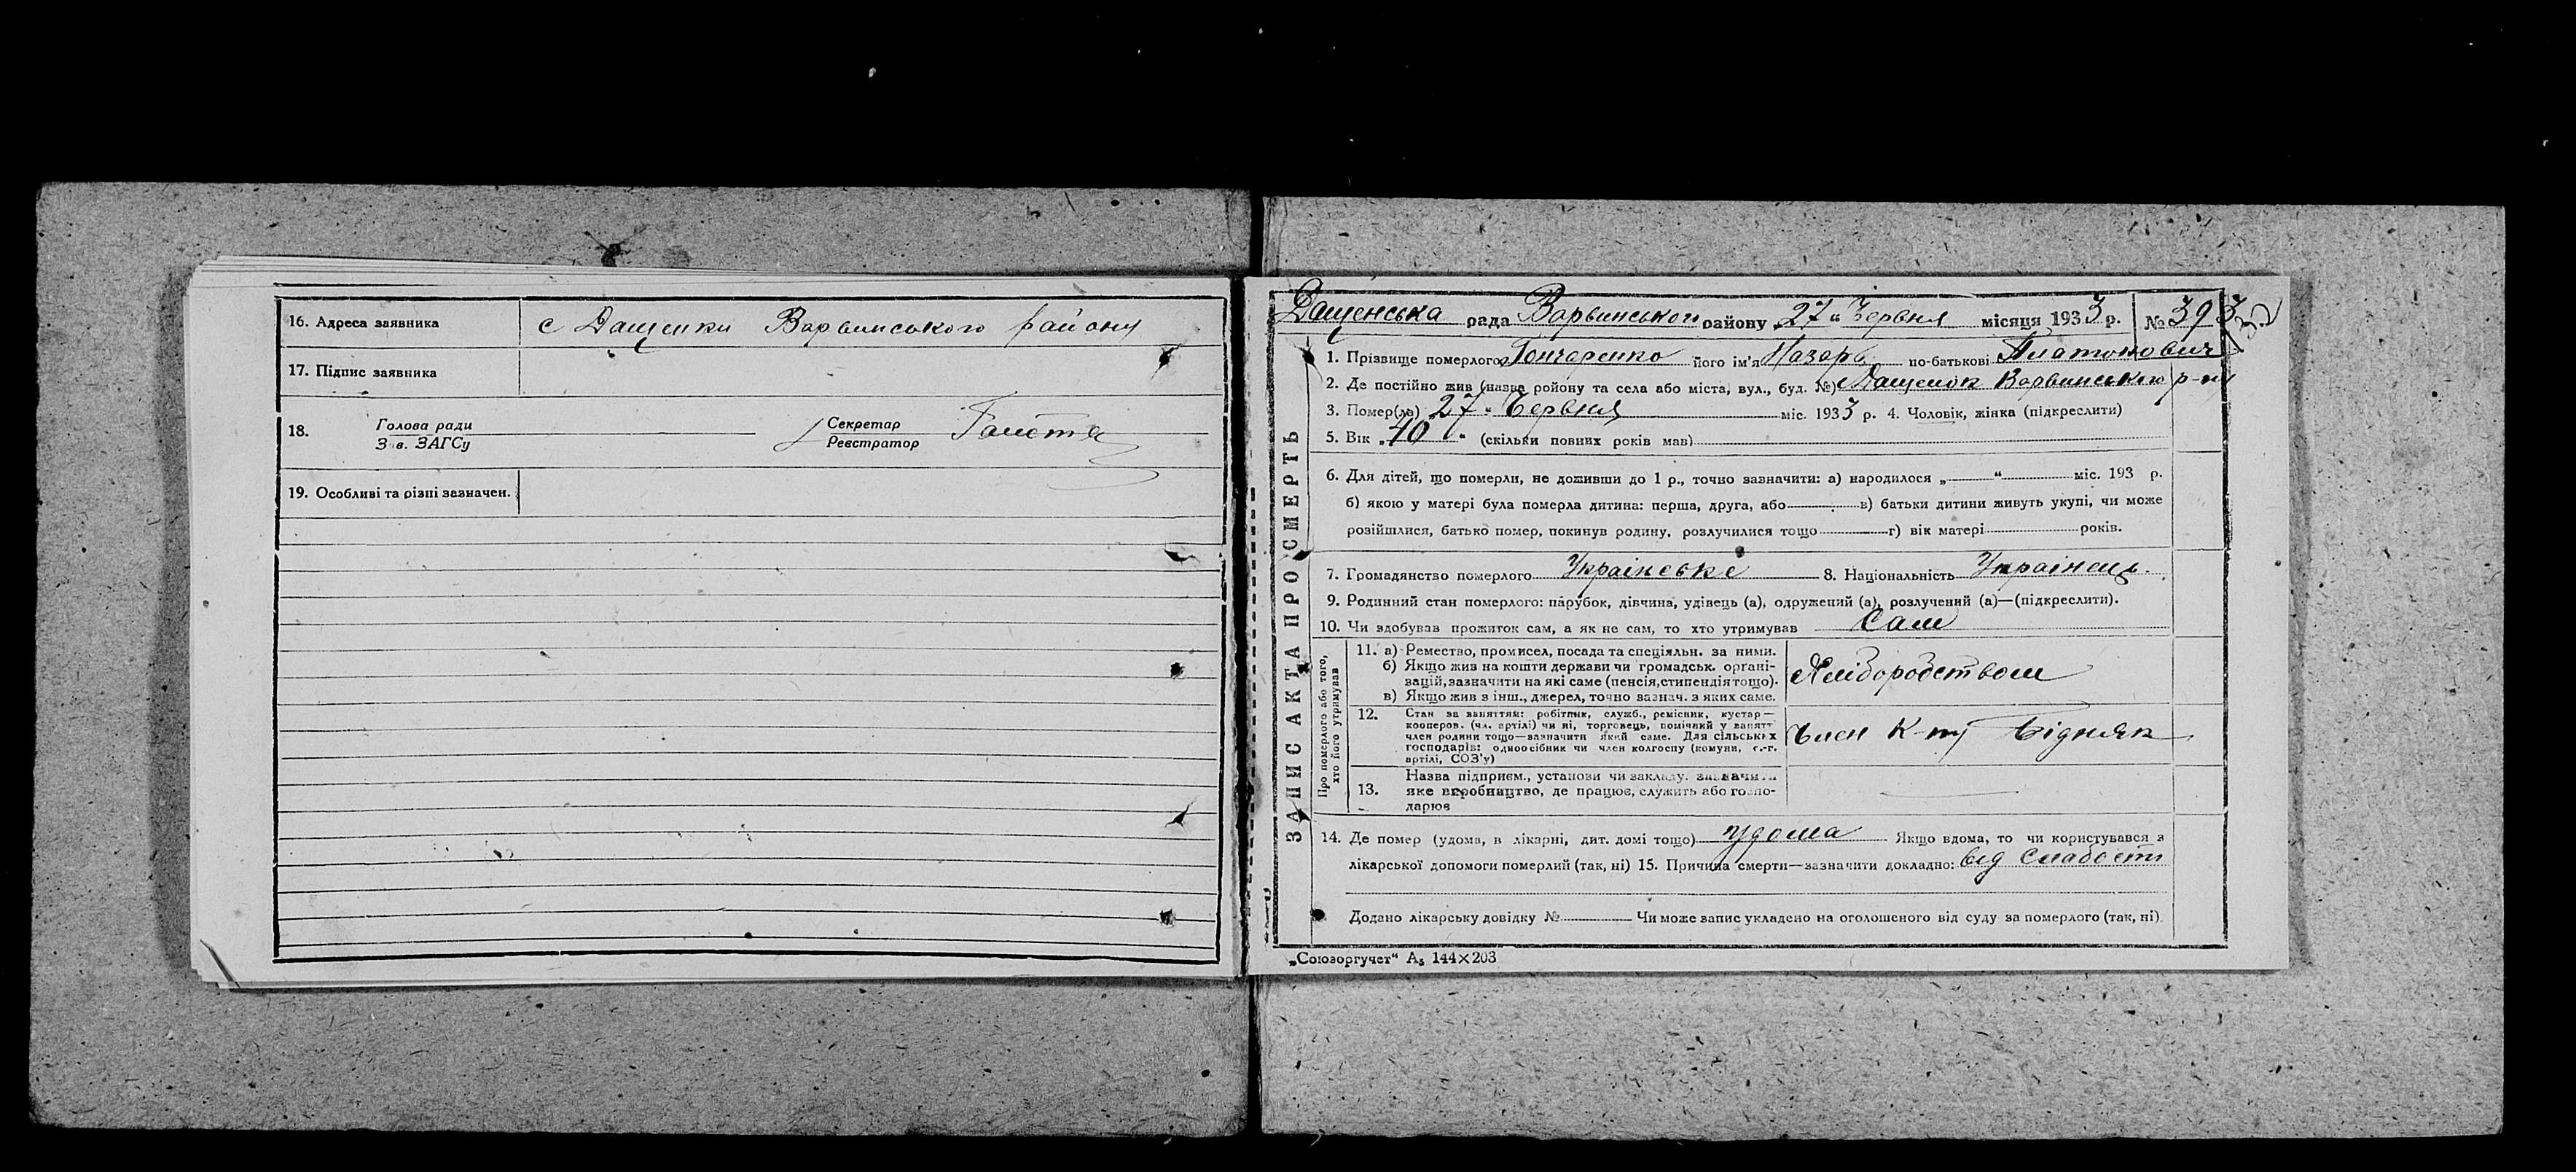 16. Адреса заявника с Дащенки Варвинського району
17. Підпис заявника
18. Голова ради Секретар
Зав. ЗАГСу Реєстратор
19. Особливі та різні зазначен.
Дащенська рада Варвинського району „27“ Червня місяця 1933 р. № 393
ЗАПИС АКТА ПРО СМЕРТЬ
1. Прізвище померлого Гончаренко його ім'я Назарь по-батькові Платонович
2. Де постійно жив (назваройону та села або міста, вул., буд. №) Дащенок Варвинського р-ну
3. Помер(ла) „27“ Червня міс. 1933 р. 4. Чоловік, жінка (підкреслити)
5. Вік „40“ (скільки повних років мав)
6. Для дітей, що померли, не доживши до 1 р., точно зазначити: а) народилося „ “ міс. 193 р.
б) якою у матері була померла дитина: перша, друга, або в) батьки дитини живуть укупі, чи може
розійшлися, батько помер, покинув родину, розлучилися тощо г) вік матері років.
7. Громадянство померлого Українське 8. Національність Українець.
9. Родинний стан померлого: парубок, дівчина, удівець (а), одружений (а), розлучений (а)—(підкреслити).
10. Чи здобував прожиток сам, а як не сам, то хто утримував Сам
Про померлого або того,
хто його утримував
11. а) Ремество, промисел, посада та спеціяльн. за ними.
б) Якщо жив на кошти держави чи громадськ. органі-
зацій, зазначити на які саме (пенсія, стипендія тощо).
в) Якщо жив з інш., джерел, точно зазнач. з яких саме.
Хліборобством
12. Стан за заняттям: робітник, служб., ремісник, кустар—
кооперов. (чл. артілі) чи ні, торговець, помічний у занятт
член родини тощо—зазначити який саме. Для сільських
господарів: одноосібник чи член колгоспу (комуни, с.-г.
артілі, СОЗ'у)
Член К-ту Бідняк
13. Назва підприєм., установи чи закладу. зазначити
яке виробництво, де працює, служить або госпо-
дарює
14. Де помер (удома, в лікарні, дит. домі тощо) удома Якщо вдома, то чи користувався з
лікарської допомоги померлий (так, ні) 15. Причина смерти—зазначити докладно: від слабости
Додано лікарську довідку № Чи може запис укладено на оголошеного від суду за померлого (так, ні)
„Союзоргучет“ А₅ 144×203